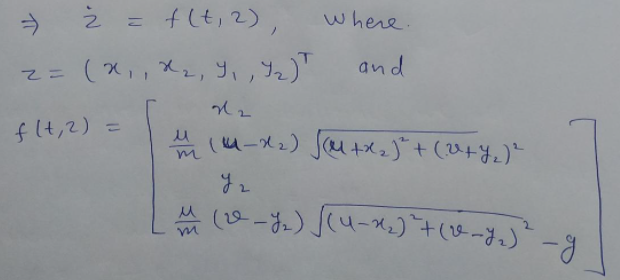 ⇒ ż = f(t,z), where.
z = (x₁, x₂, y₁, y₂)ᵀ and
x₂
f(t,z) = [ μ/m (u-x₂) √(u+x₂)² + (v+y₂)²
y₂
μ/m (v-y₂) √(u-x₂)² + (v-y₂)² - g ]